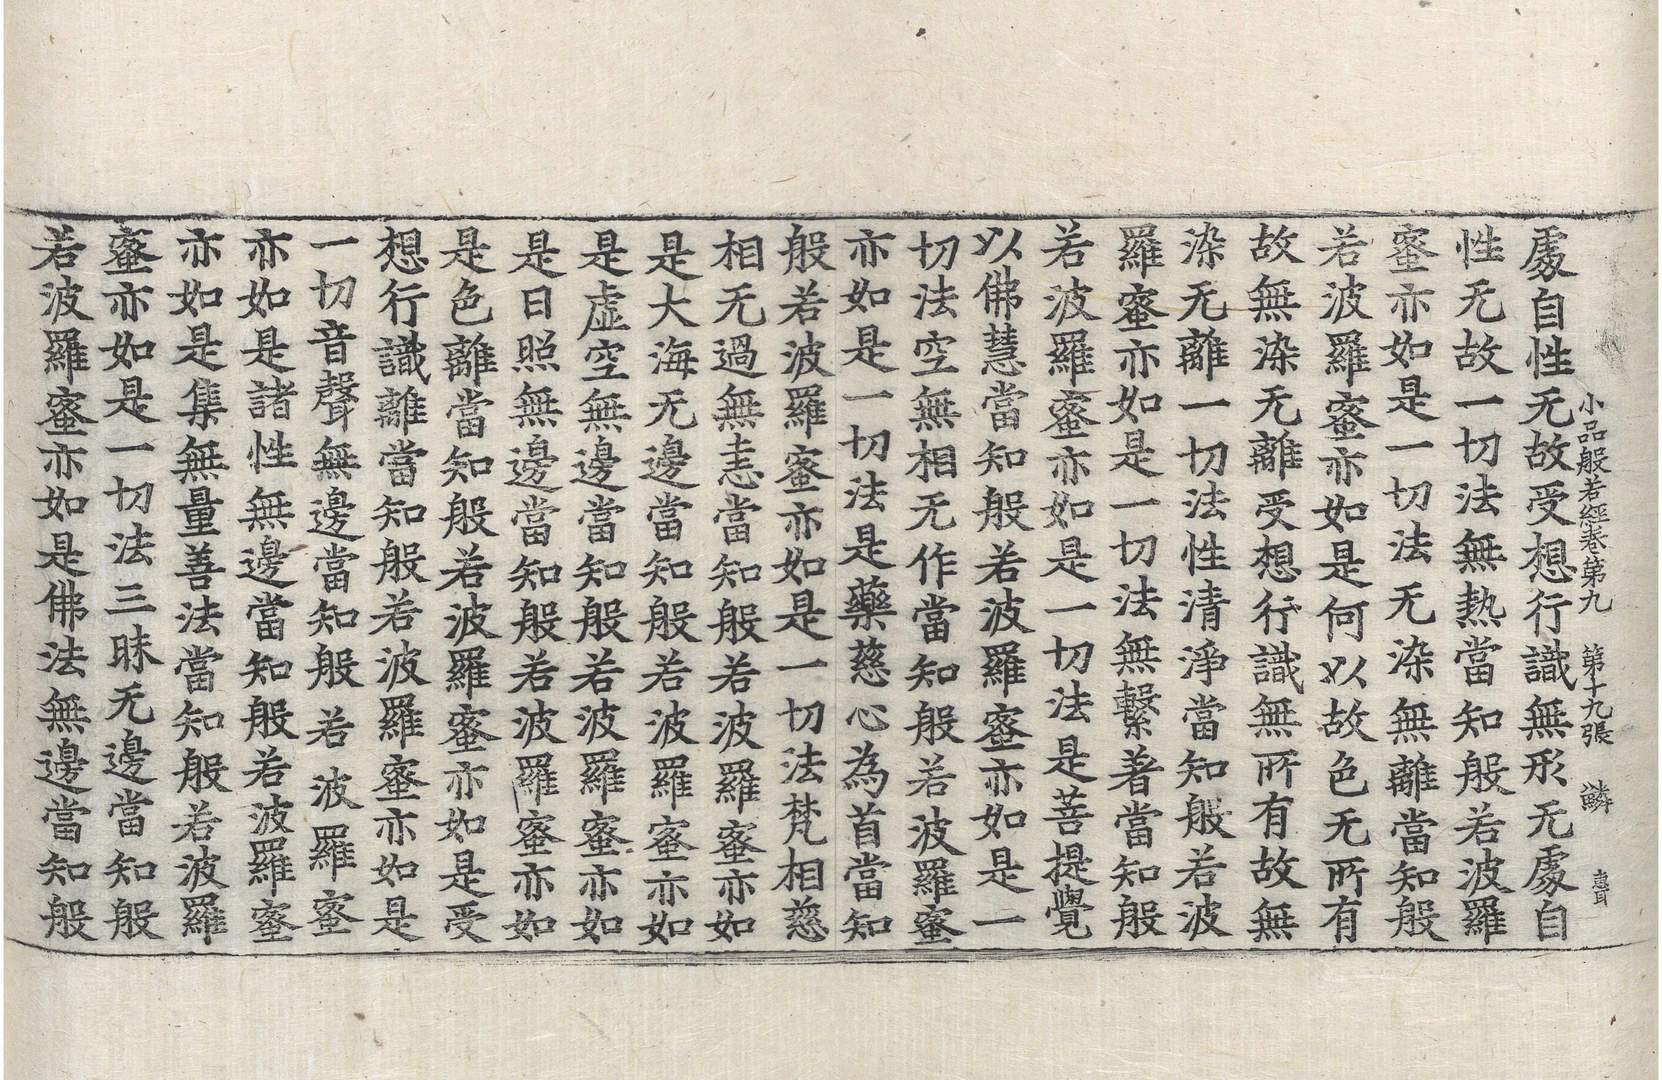 小品般若經卷第九 第十九張 鱗
處自性无故受想行識無形无處自
性无故一切法無熱當知般若波羅
蜜亦如是一切法无染無離當知般
若波羅蜜亦如是何以故色无所有
故無染无離受想行識無所有故無
染无離一切法性清淨當知般若波
羅蜜亦如是一切法無繫著當知般
若波羅蜜亦如是一切法是菩提覺
以佛慧當知般若波羅蜜亦如是一
切法空無相无作當知般若波羅蜜
亦如是一切法是藥慈心為首當知
般若波羅蜜亦如是一切法梵相慈
相无過無恚當知般若波羅蜜亦如
是大海无邊當知般若波羅蜜亦如
是虛空無邊當知般若波羅蜜亦如
是日照無邊當知般若波羅蜜亦如
是色離當知般若波羅蜜亦如是受
想行識離當知般若波羅蜜亦如是
一切音聲無邊當知般若波羅蜜
亦如是諸性無邊當知般若波羅蜜
亦如是集無量善法當知般若波羅
蜜亦如是一切法三昧无邊當知般
若波羅蜜亦如是佛法無邊當知般